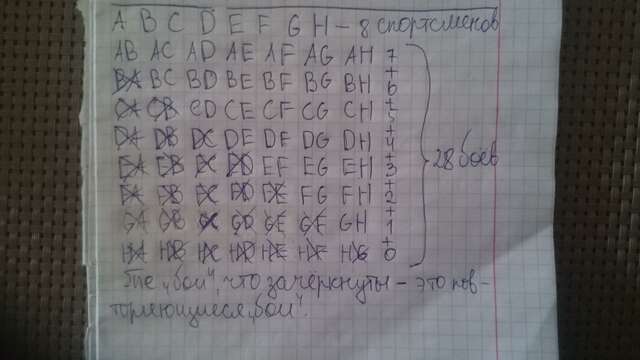 A B C D E F G H – 8 спортсменов
AB AC AD AE AF AG AH 7
+
BA BC BD BE BF BG BH 6
+
CA CB CD CE CF CG CH 5
+
DA DB DC DE DF DG DH 4
+
EA EB EC ED EF EG EH 3
+
FA FB FC FD FE FG FH 2
+
GA GB GC GD GE GF GH 1
+
HA HB HC HD HE HF HG 0
28 боёв
Те „бои", что зачёркнуты – это пов-
торяющиеся „бои".